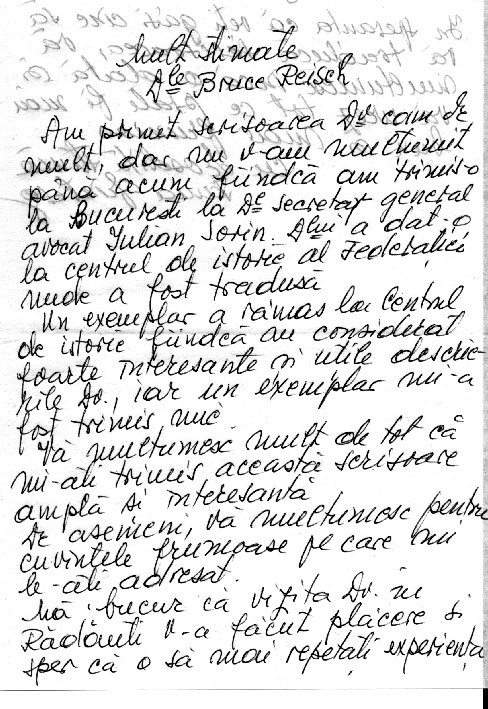 Mult stimate
Dle Bruce Reisch
Am primit scrisoarea Dv cam de
mult, dar nu v-am multumit
până acum fiindcă am trimis-o
la Bucuresti la Dl secretar general
avocat Iulian Sorin. Dlui a dat-o
la centrul de istorie al Federatiei
unde a fost tradusă
Un exemplar a rămas la Centrul
de istorie fiindcă au considerat
foarte interesante si utile descrie-
rile Dv., iar un exemplar mi-a
fost trimis mie
Vă multumesc mult de tot că
mi-ati trimis această scrisoare
amplă si interesantă
De asemeni, vă multumesc pentru
cuvintele frumoase pe care mi
le-ati adresat.
Mă bucur că vizita Dv. în
Rădăuti v-a făcut plăcere si
sper că o să mai repetati experienta